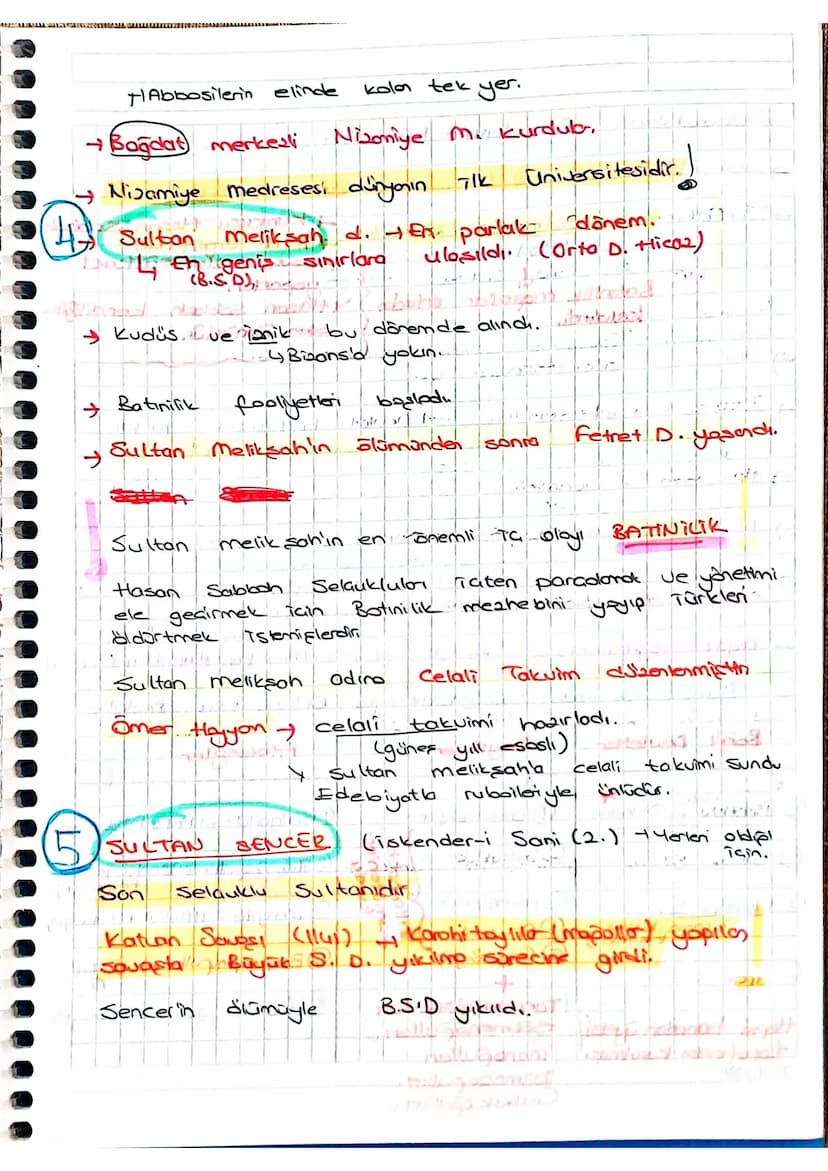 →Abbasilerin elinde kalan tek yer.
→ Bağdat merkezli Nizamiye M. kurdular.
→ Nizamiye medresesi dünyanın ilk üniversitesidir.!
4→ Sultan Melikşah d. → En parlak dönem.
↳ En geniş sınırlara ulaşıldı. (Orta D. Hicaz)
(B.S.D)
→ Kudüs ve iznik bu dönemde alındı.
↳ Bizans'a yakın.
→ Batınilik faaliyetleri başladı.
→ Sultan Melikşah'ın ölümünden sonra Fetret D. yaşandı.
! Sultan melikşah'ın en önemli iç olayı BATINİLİK
Hasan Sabbah Selçukluları içten parçalamak ve yönetimi
ele geçirmek için Batınilik mezhebini yayıp Türkleri
öldürtmek istemişlerdir
Sultan melikşah adına Celali Takvim düzenlenmiştir
Ömer Hayyam → celali takvimi hazırladı.
(güneş yılı esaslı)
↘ Sultan melikşah'a celali takvimi sundu
Edebiyatta rubaileriyle ünlüdür.
5 SULTAN SENCER (İskender-i Sani (2.) →Yerleri aldığı
için.
Son Selçuklu Sultanıdır
Katvan Savaşı (1141) → Karahitaylılar (moğollar) yapılan
savaşta Büyük S. D. yıkılma sürecine girdi. !
Sencer'in ölümüyle B.S.D yıkıldı.